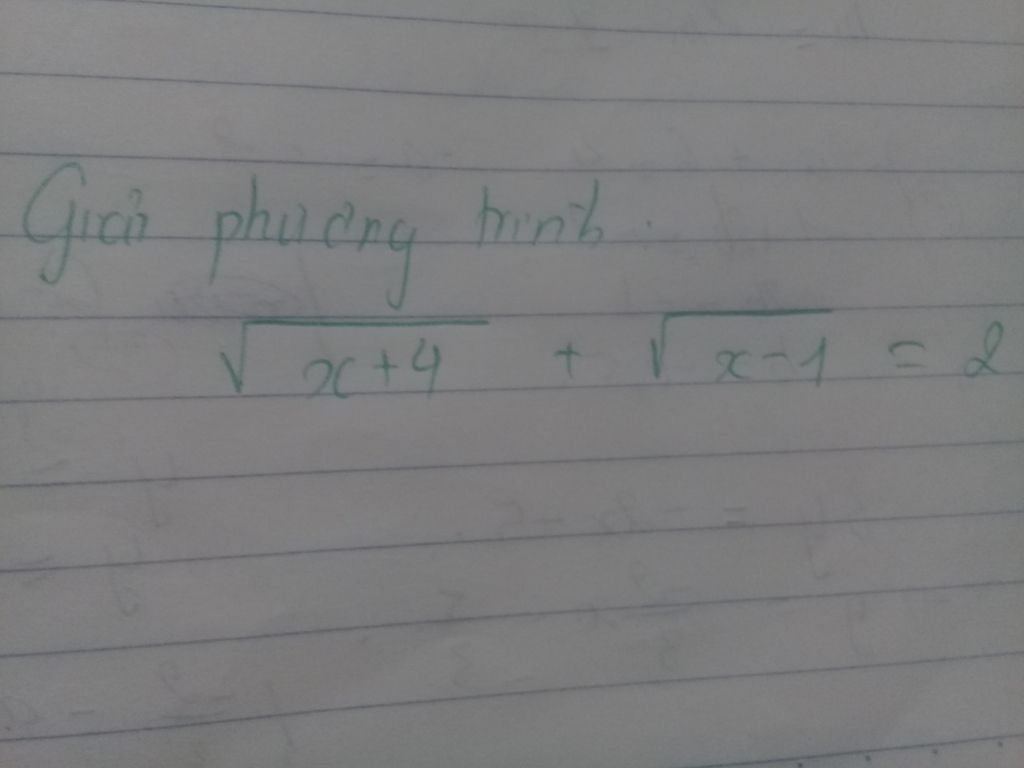 Giải phương trình.
√x+4 + √x-1 = 2